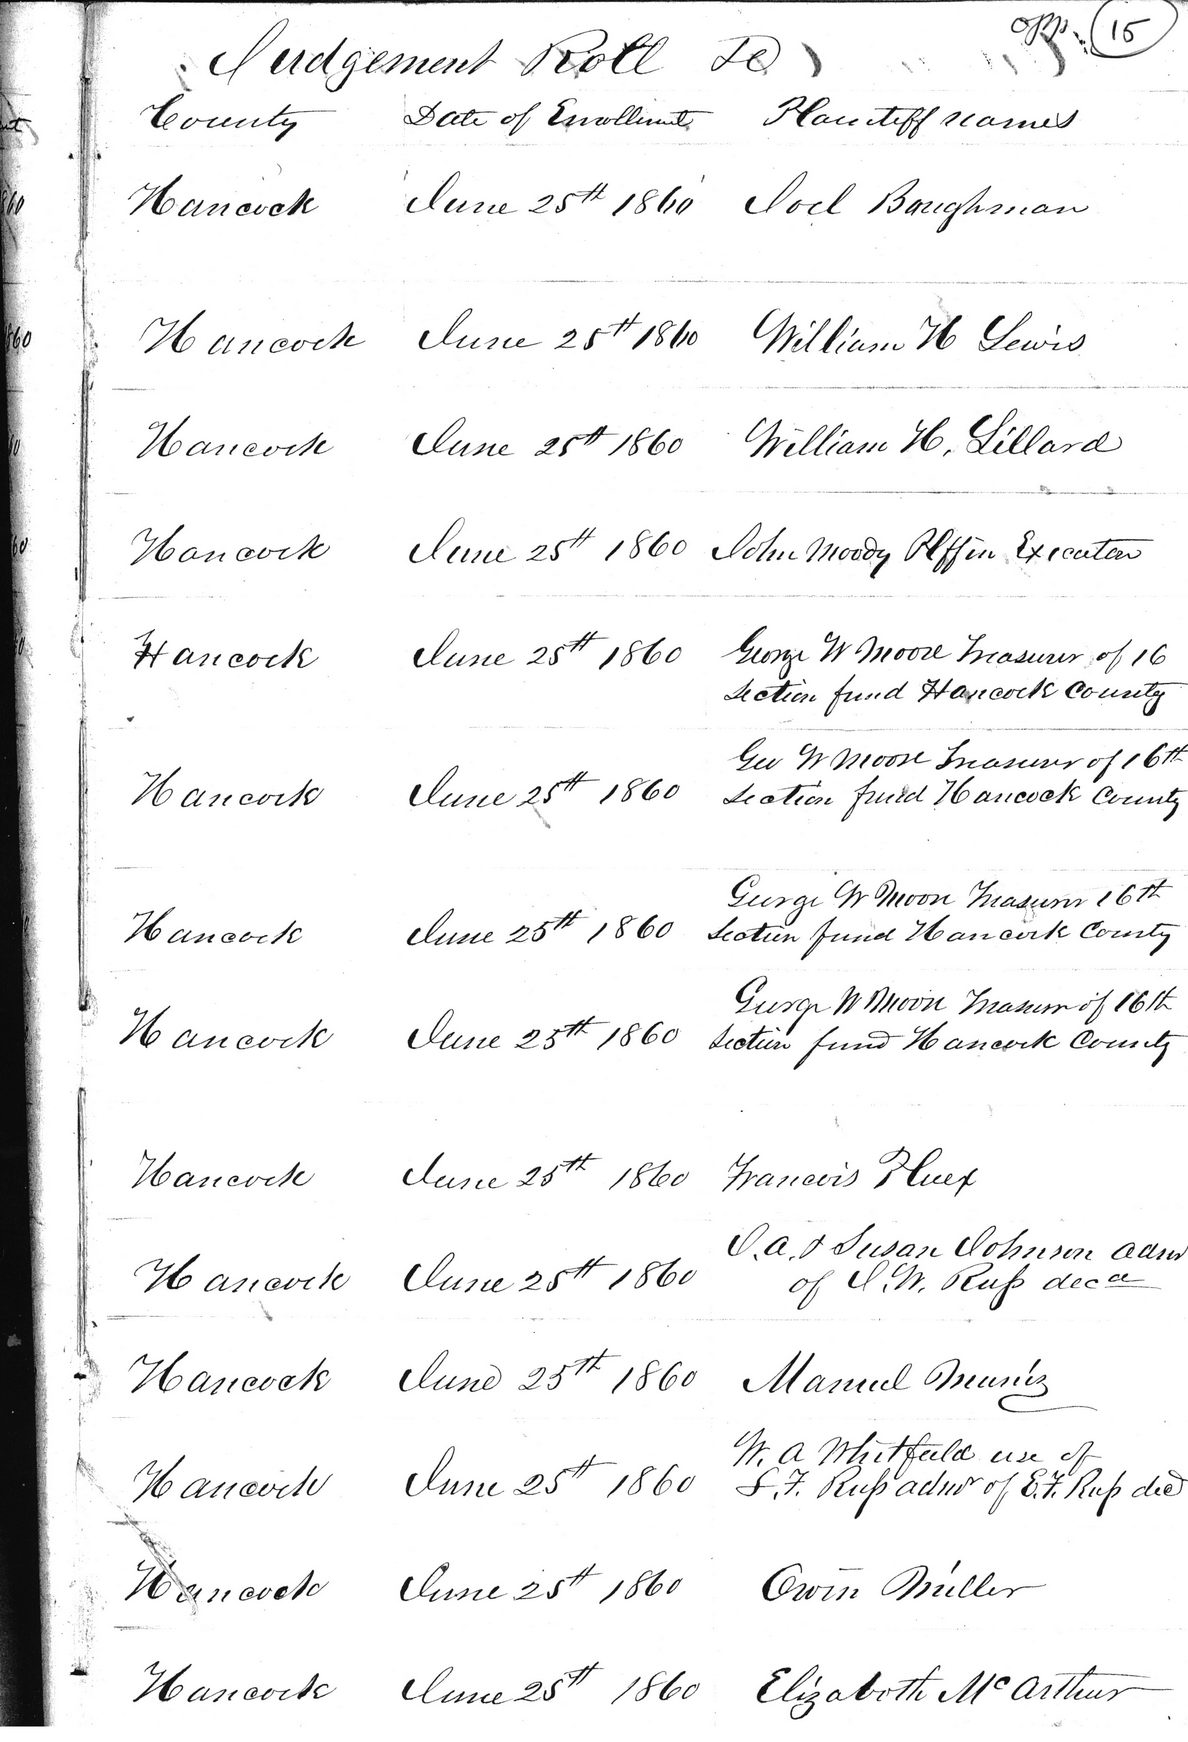 opp. 15
Judgement Roll
County Date of Enrollment Plaintiff names
Hancock June 25th 1860 Joel Baughman
Hancock June 25th 1860 William H Lewis
Hancock June 25th 1860 William H. Lillard
Hancock June 25th 1860 John Moody Executor
Hancock June 25th 1860 George W Moore Treasurer of 16
Section fund Hancock County
Geo W Moore Treasurer of 16th
Hancock June 25th 1860 Section fund Hancock County
George W Moore Treasurer 16th
Hancock June 25th 1860 Section fund Hancock County
George W Moore Treasurer of 16th
Hancock June 25th 1860 Section fund Hancock County
Hancock June 25th 1860 Francois
J. A. & Susan Johnson admr
Hancock June 25th 1860 of J. W. Russ decd
Hancock June 25th 1860 Manuel Muniz
W. A Whitfield use of
Hancock June 25th 1860 S. F. Russ admr of E. F. Russ decd
Hancock June 25th 1860 Orvin Miller
Hancock June 25th 1860 Elizabeth McArthur
60
60